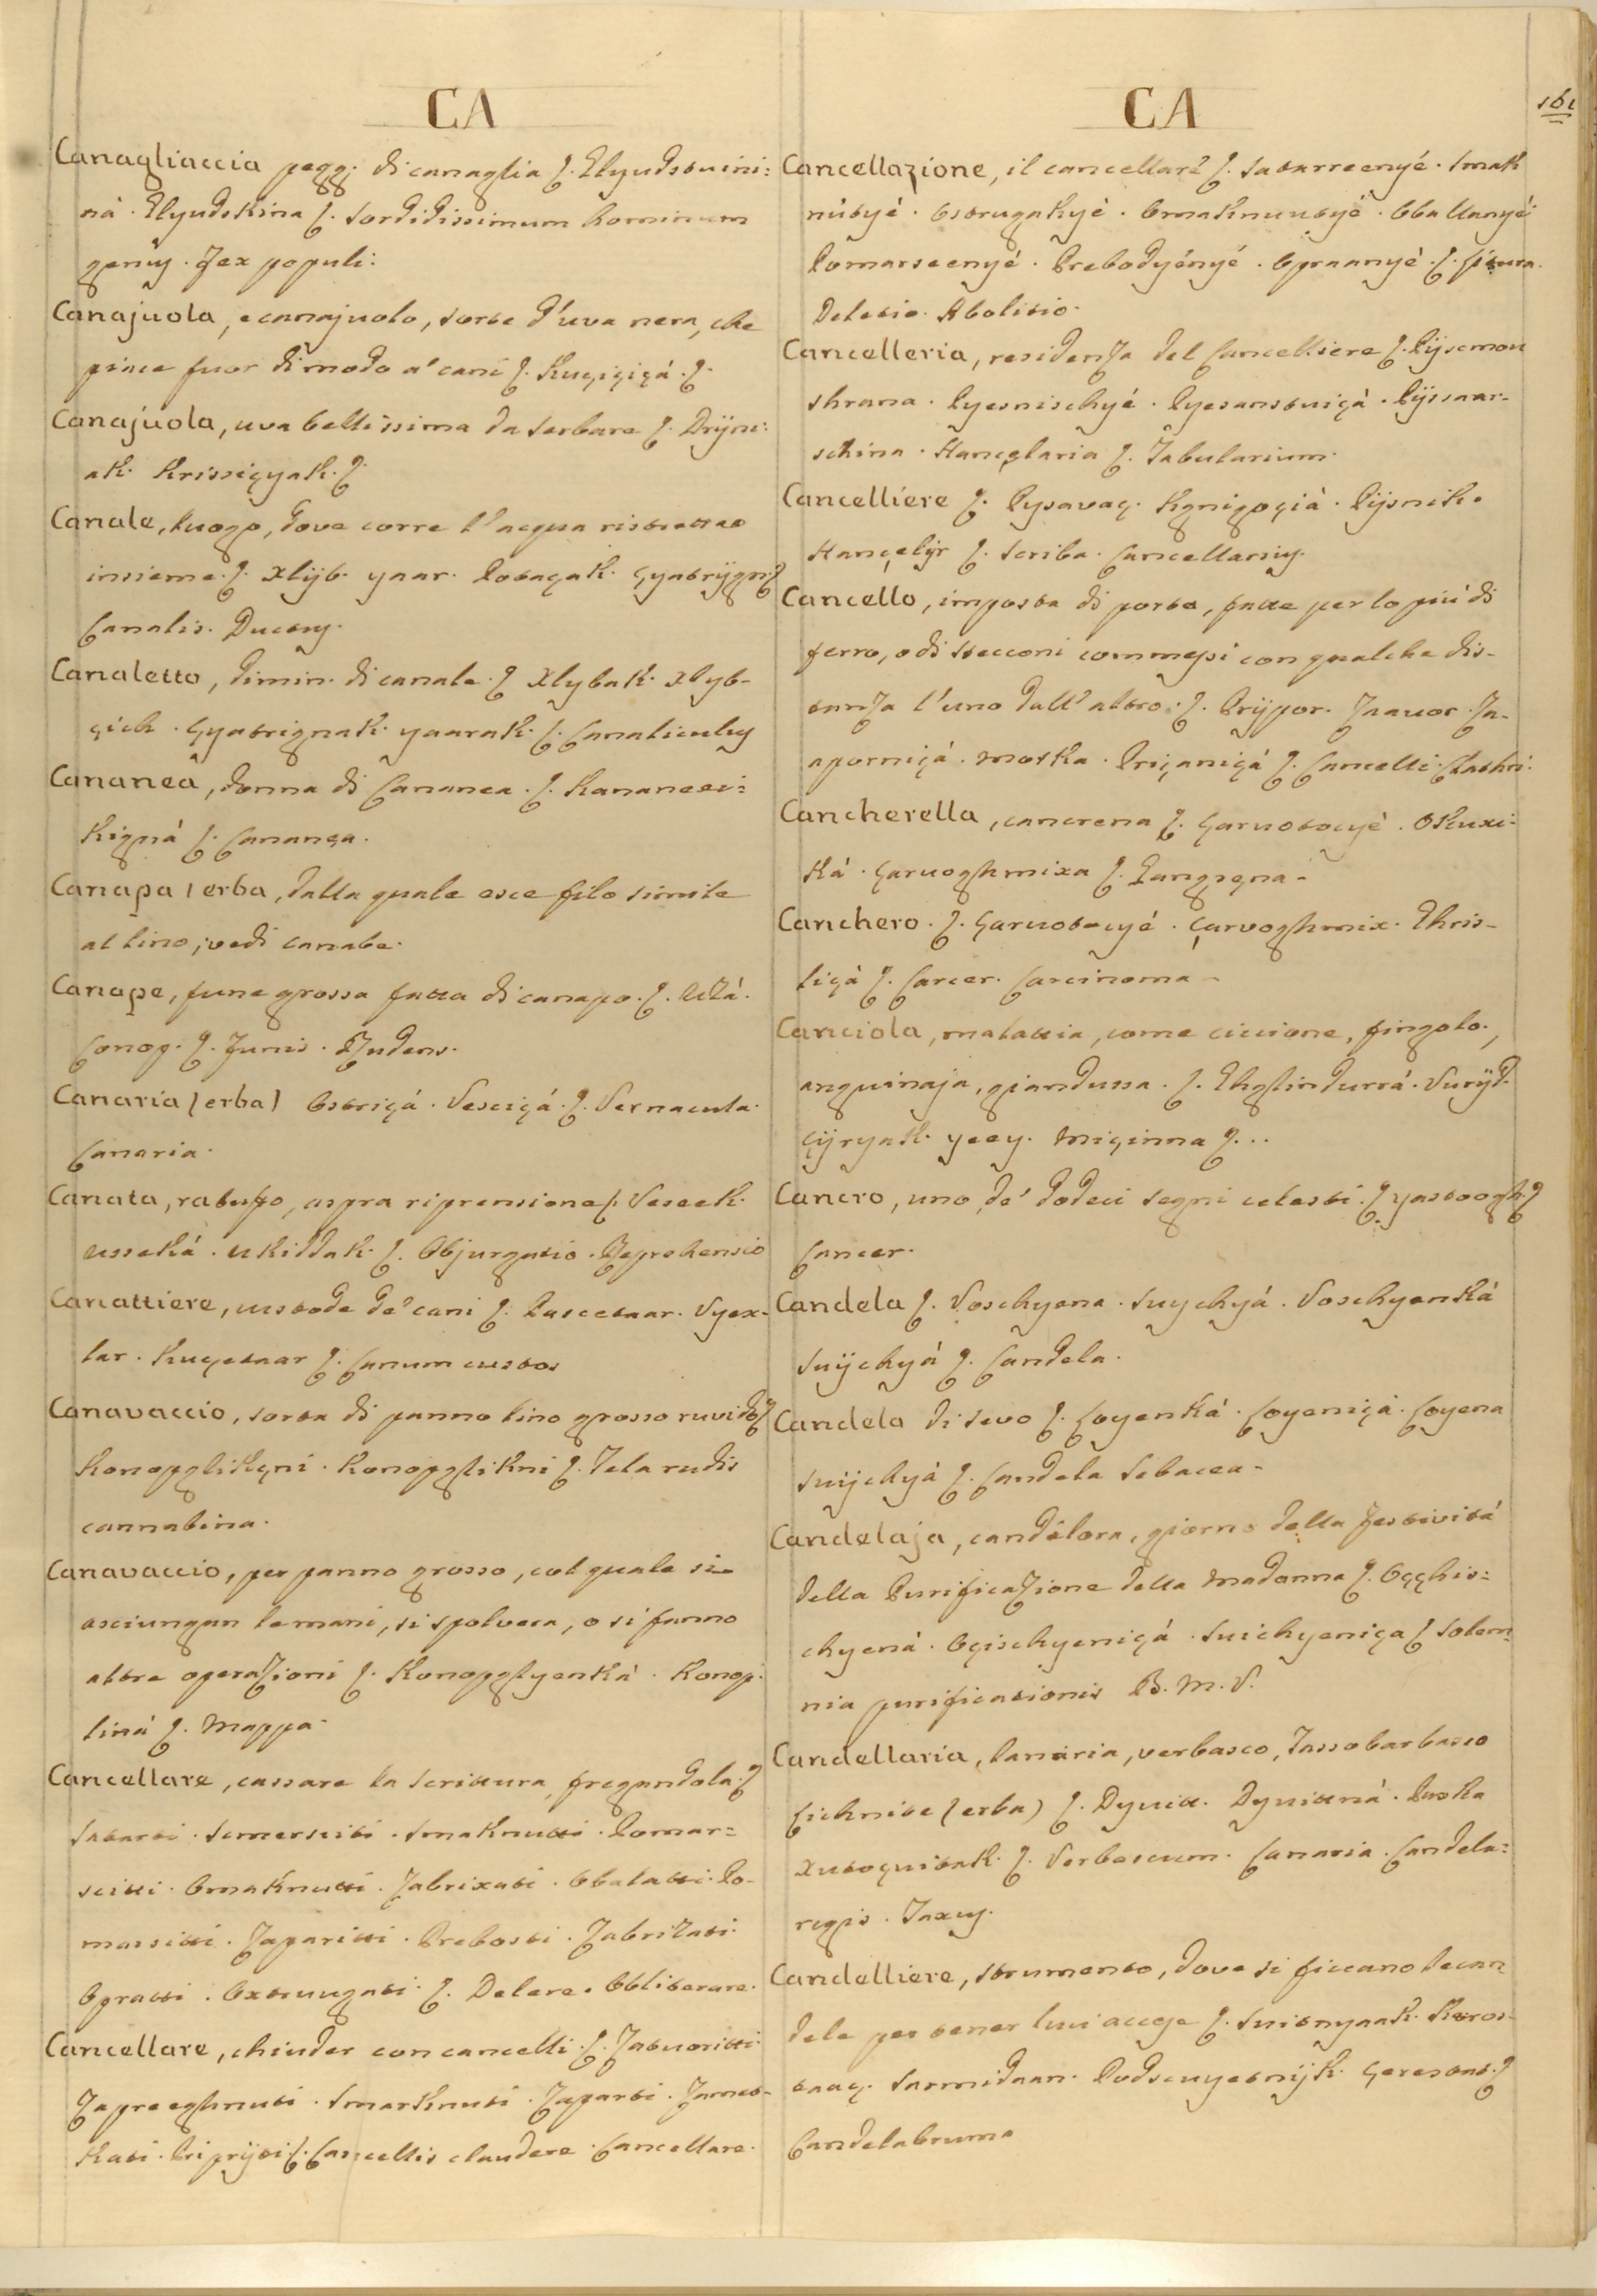 CA
Canagliaccia pegg. di canaglia ſ. Glyudstvini:
ná. Glyudskina ſ. Sordidissimum hominum
genus. Fex populi:
Canajuola, e canajuolo, sorte d'uva nera, che
piace fuor di modo a' cani ſ. Kuçiçiçá. ſ.
Canajuola, uva bellissima da serbare ſ. Drijni:
ak. Krissiçyak. ſ.
Canale, luogo, dove corre l'acqua ristretta
insieme. ſ. Xlijb. yaar. Potaçak. Gyatrijgn ſ
Canalis. Ductus.
Canaletto, dimin. di canale. ſ Xlybak. Xlyb-
çich. Gyatrignak. yaarak. ſ. Canaliculus
Cananea, donna di Cananea. ſ. Kananeei:
kigná ſ. Cananea.
Canapa (erba, dalla quale esce filo simile
al lino; vedi canabe.
Canape, fune grossa fatta di canapo. ſ. Uxá.
Conop. ſ. Funis. Rudens.
Canaria (erba) Ostriçá. Vesciçá. ſ. Vernacula.
Canaria.
Canata, rabuffo, aspra riprensione ſ. Veseek.
usseká. ukiddak. ſ. Objurgatio. Reprehensio
Canattiere, custode de' cani ſ. Pascetaar. Vyex-
lar. Kuçetaar ſ. Canum custos
Canavaccio, sorta di panno lino grosso ruvido ſ
Konopglikçni. Konopglikni ſ. Tela rudis
cannabina.
Canavaccio, per panno grosso, col quale si
asciungan le mani, si spolvera, o si fanno
altre operazioni ſ. Konopglyenká. Konop.
liná ſ. Mappa.
Cancellare, cassare la scrittura, fregandola. ſ
Satarti. Smersciti. Smaknutti. Pomar=
scitti. Omaknutti. Zabrixati. Obalatti. Po-
massitti. Zaparitti. Prebosti. Zabrizati.
Opratti. Oxtrugati. ſ. Delere. Obliterare.
Cancellare, chiuder con cancelli. ſ. Zatvoritti.
Zapreeghnuti. Smarknuti. Zaparti. Zamet-
kati. Priprijti ſ. Cancellis claudere. Cancellare.
CA
161
Cancellazione, il cancellare ſ. Satarreenyé. Smak
nútyé. Ostrugakyé. Omaknuutyé. Oballanyé
Pomarseenyé. Prebodyényé. Opraanyé. ſ. Litura.
Deletio. Abolitio.
Cancelleria, residenza del Cancelliere ſ. Pijsemou
shrana. Pyesnischyé. Pyesanstviçá. Pijssaar-
schina. Kançelaria ſ. Tabularium.
Cancelliere ſ. Pysavaç. Kgnigoçiá. Pijsnik.
Kançelijr ſ. Scriba. Cancellarius.
Cancello, imposta di porta, fatta per lo piú di
ferro, o di stecconi commessi con qualche dis-
tanza l'uno dall' altro. ſ. Prijpor. Zaavor. Za-
aporniçá. Motka. Priçaniçá ſ. Cancelli. Clathri.
Cancherella, cancrena ſ. Çarvotocyé. Okuxi:
ká. Çarvoghmixa ſ. Gangrena.
Canchero. ſ. Çarvotocyé. Çarvoghmix. Ghris-
liçá ſ. Carcer. Carcinoma.
Canciola, malattia, come ciccione, fingolo.,
anguinaja, giandussa. ſ. Ghglindurrá. Vurijd.
Çijryak. yeey. Miçinna ſ...
Cancro, uno de' dodeci segni celesti. ſ yastoogh. ſ
Cancer.
Candela ſ. Voschyena. Suychyá. Voschyenká
Suijchyá ſ. Candela.
Candela di sevo ſ. Loyenká. Loyeniçá. Loyena
suijchyá ſ. Candela Sebacea.
Candelaja, candélora, giorno della festivitá
della Purificazione della Madonna ſ. Oççhis:
chyená. Oçischyeniçá. Suichyeniça ſ Solem:
nia purificationis B. M. V.
Candellaria, lanaria, verbasco, Tassobarbasso
Lichnite (erba) ſ. Dyvitt. Dyvittná. Paska
xutoçuitak. ſ. Verbascum. Canaria. Candela:
regis. Taxus.
Candelliere, strumento, dove si ficcano le can
dele per tener lumi accesi ſ. Svitnyaak. Keros-
taaç. Sarmidaan. Podscuyetnijk. Çeretat. ſ
Candelabrum.